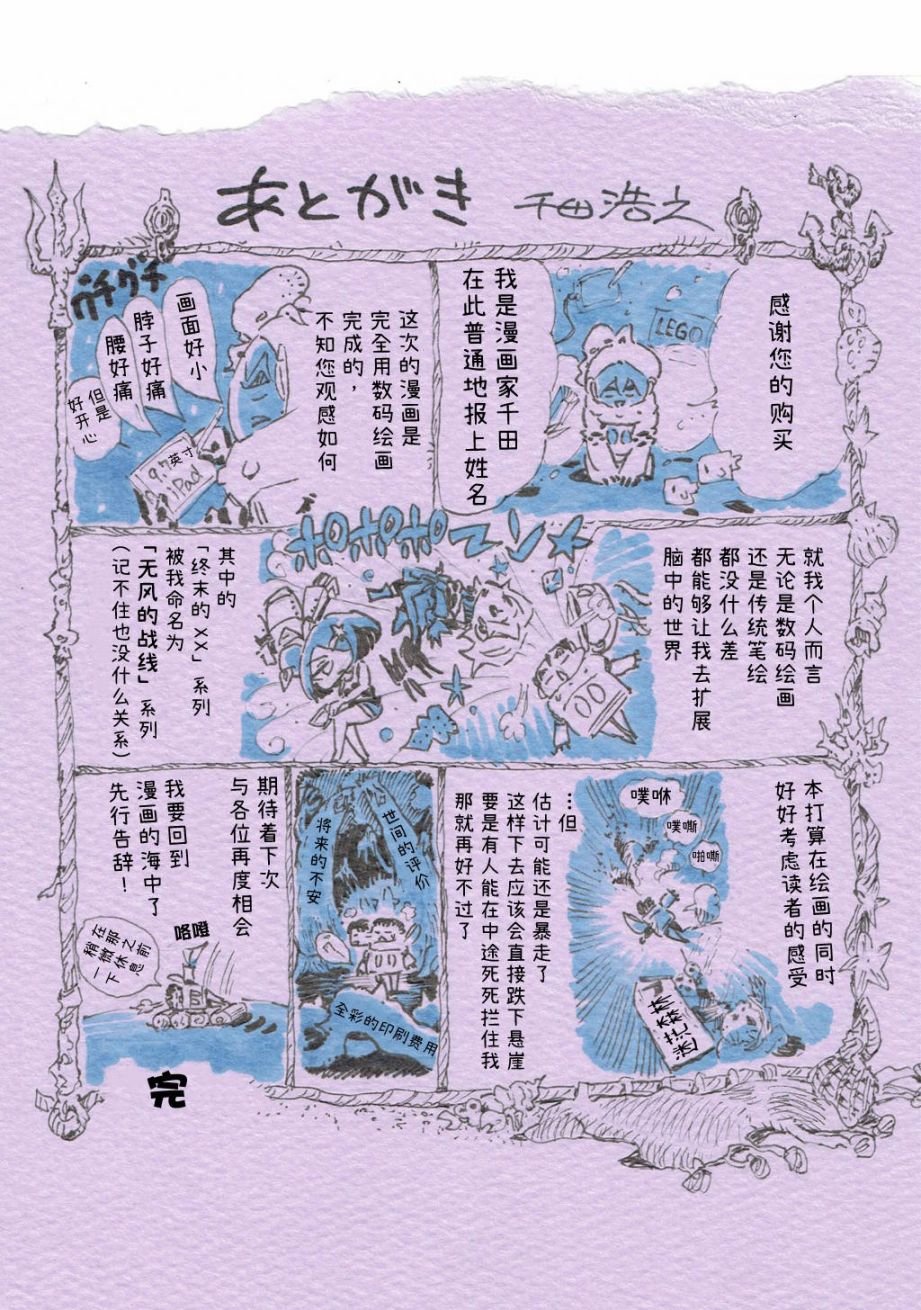 あとがき 千田浩之
感谢您的购买
LEGO
我是漫画家千田
在此普通地报上姓名
这次的漫画是
完全用数码绘画
完成的，
不知您观感如何
グチグチ
画面好小
脖子好痛
腰好痛
但是
好开心
9.7英寸
iPad
就我个人而言
无论是数码绘画
还是传统笔绘
都没什么差
都能够让我去扩展
脑中的世界
ポポポポ〜ン☆
其中的
「终末的XX」系列
被我命名为
「无风的战线」系列
（记不住也没什么关系）
本打算在绘画的同时
好好考虑读者的感受
噗咻
噗嘶
啪嘶
…但
估计可能还是暴走了
这样下去应该会直接跌下悬崖
要是有人能在中途死死拦住我
那就再好不过了
世间的评价
将来的不安
全彩的印刷费用
期待着下次
与各位再度相会
我要回到
漫画的海中了
先行告辞！
咯噔
在那之前
稍微休息
一下
完